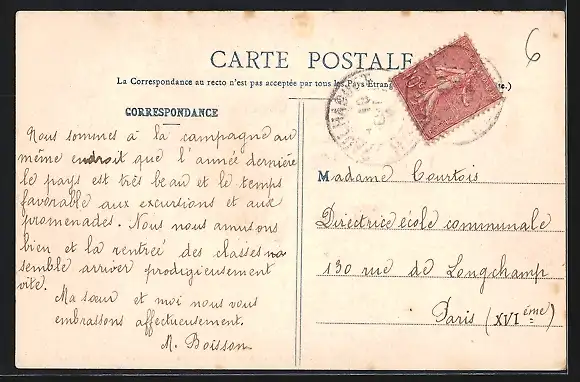 6
CARTE POSTALE
La Correspondance au recto n'est pas acceptée par tous les Pays Étrang
e.)
CORRESPONDANCE
Nous sommes à la campagne au
même endroit que l'année dernière
le pays est très beau et le temps
favorable aux excursions et aux
promenades. Nous nous amusons
bien et la rentrée des classes va
semble arriver prodigieusement
vite.
Ma sœur et moi nous vous
embrassons affectueusement.
M. Boisson
Madame Courtois
Directrice école communale
130 rue de Longchamp
Paris (XVI ème)